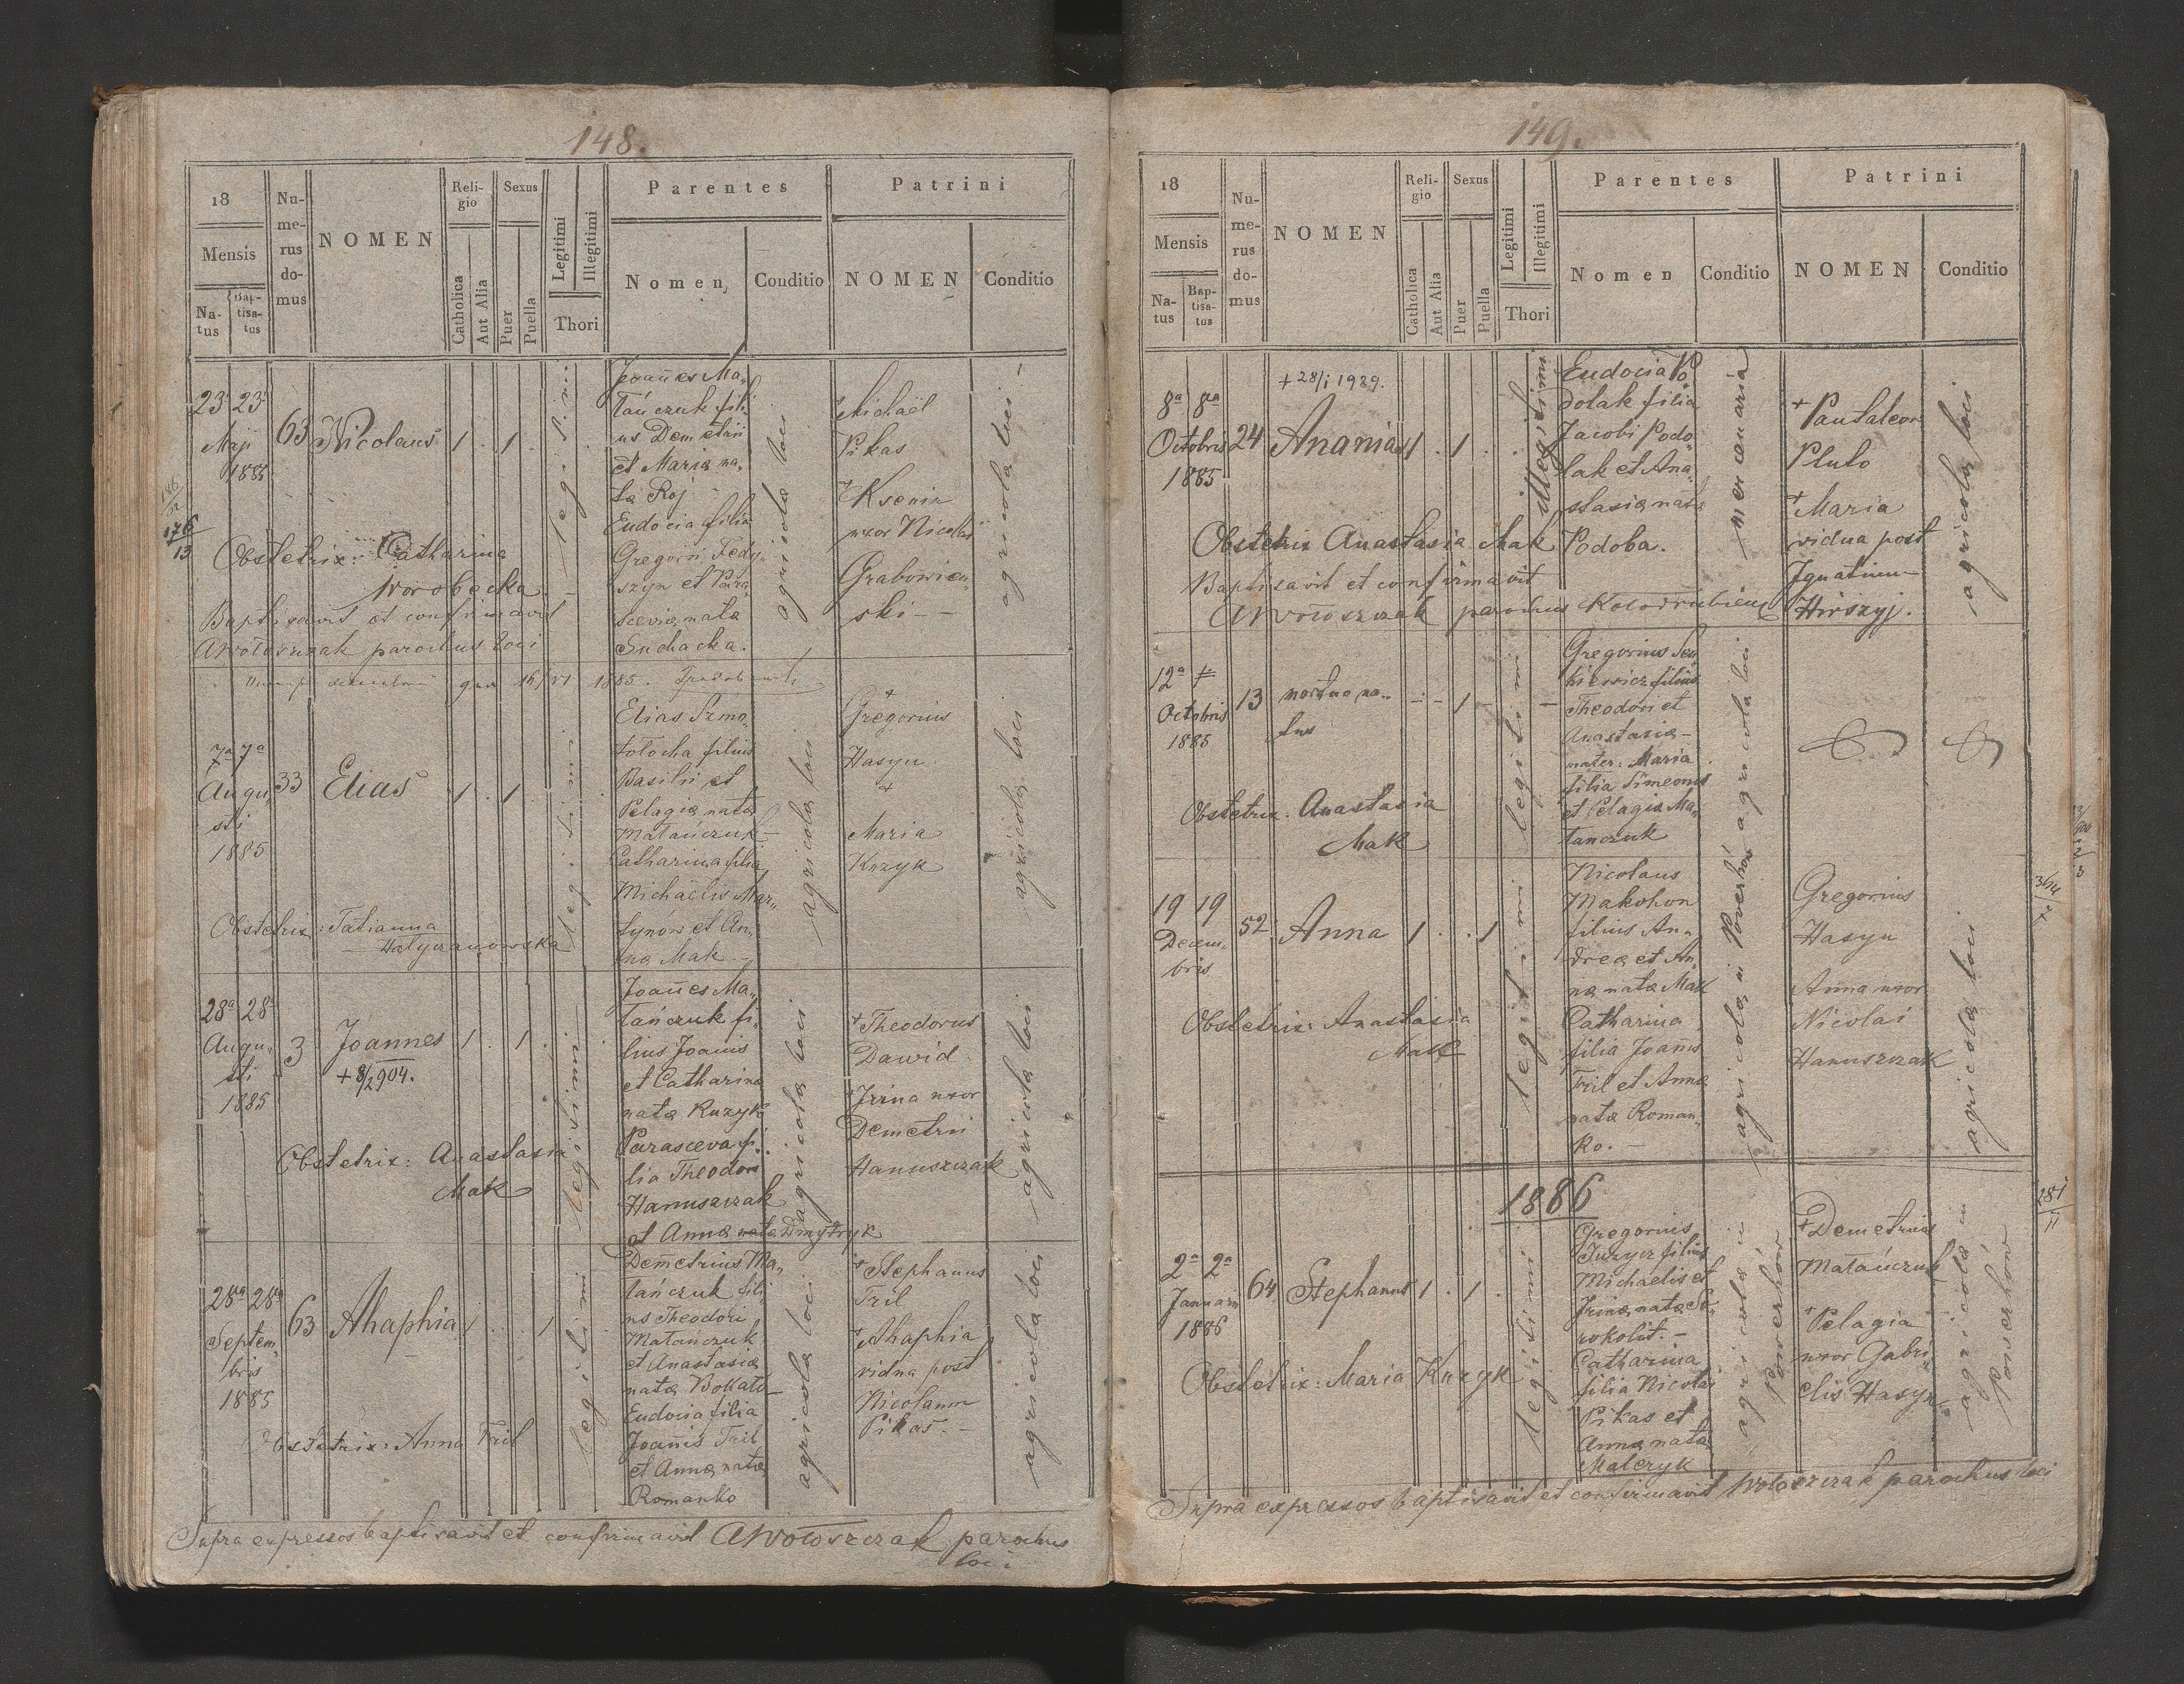 148.
18
Mensis
Na-
tus
Bap-
tisa-
tus
Nu-
me-
rus
do-
mus
NOMEN
Reli-
gio
Catholica
Aut Alia
Sexus
Puer
Puella
Legitimi
Illegitimi
Thori
Parentes
Nomen
Conditio
Patrini
NOMEN
Conditio
23 23
Maji
1885
63
Nicolaus
1 . 1 .
legitimi
Joannes Ma-
tańczuk fili-
us Demetrii
et Maria na-
ta Roj
Eudocia filia
Gregorii Fedy-
szyn et Para-
scevia nata
Suchacka.
agricola loci
Michaël
Pikas
Ksenia
uxor Nicolai
Grabowien-
ski -
agricola loci -
176
13
Obstetrix: Catharina
Worobecka
Baptisavit et confirmavit
AWołoszczak parochus loci
1885.
7a 7a
Augu-
sti
1885
33
Elias
1 . 1 .
legitimi
Elias Szmo-
tołocha filius
Basilii et
Pelagia nata
Matańczuk -
Catharina filia
Michaelis Mar-
tynów et An-
na Mak -
agricola loci
+
Gregorius
Hasyn
+
Maria
Kuzyk
agricola loci
Obstetrix: Tatianna
Halyczanowska
28a 28a
Augu-
sti
1885
3
Joannes
+ 8/2 904.
1 . 1 .
legitimi
Joannes Ma-
tańczuk fi-
lius Joanis
et Catharina
nata Kuzyk
Parasceva fi-
lia Theodori
Hanuszczak
et Anna nata Dmytryk
agricola loci
+ Theodorus
Dawid
+ Irina uxor
Demetrii
Hanuszczak
agricola loci
Obstetrix: Anastasia
Mak
28a 28a
Septem-
bris
1885
63
Ahaphia
1 . . 1
legitimi
Demetrius Ma-
tańczuk fili-
us Theodori
Matańczuk
et Anastasia
nata Bokało -
Eudocia filia
Joannis Tril
et Anna nata
Romanko
agricola loci
+ Stephanus
Tril
+ Ahaphia
vidua post
Nicolaum
Pikas. -
agricola loci
Obstetrix: Anna Tril
Supra expressos baptisavit et confirmavit AWołoszczak parochus
loci
149.
18
Mensis
Na-
tus
Bap-
tisa-
tus
Nu-
me-
rus
do-
mus
NOMEN
Reli-
gio
Catholica
Aut Alia
Sexus
Puer
Puella
Legitimi
Illegitimi
Thori
Parentes
Nomen
Conditio
Patrini
NOMEN
Conditio
8a 8a
Octobris
1885
24
+ 28/i 1929.
Ananias
1 . 1 .
illegitimi
Eudocia Po-
dolak filia
Jacobi Podo-
lak et Ana-
stasia nata
Podoba.
mercenaria
+ Pantaleon
Pluto
+ Maria
vidua post
Ignatium
Hirszyj.
agricola loci
Obstetrix Anastasia Mak
Baptisavit et confirmavit
AWołoszczak parochus Kołodrubiens
12a
Octobris
1885
13
mortuo na-
tus
- - 1 -
legitimi
Gregorius Sen-
kiewicz filius
Theodori et
Anastasia -
mater: Maria
filia Simeonis
et Pelagia Ma-
tanczuk
agricola loci
Obstetrix: Anastasia
Mak
19 19
Decem-
bris
52
Anna
1 . . 1
legitimi
Nicolaus
Makohon
filius An-
drea et An-
na nata Mak
Catharina
filia Joannis
Tril et Anna
nata Roman-
ko. -
agricola in Powerhów
Gregorius
Hasyn
Anna uxor
Nicolai
Hanuszczak
agricola loci
Obstetrix: Anastasia
Mak
1886
2a 2a
Januarii
1886
64
Stephanus
1 . 1 .
legitimi
Gregorius
Juzycz filius
Michaelis et
Irina nata So-
rokolit. -
Catharina
filia Nicolai
Pikas et
Anna nata
Malczyk
agricola in
Powerhów
+ Demetrius
Matańczuk
+ Pelagia
uxor Gabri-
elis Hasyn
agricola in
Powerhów
281
11
Obstetrix: Maria Kuzyk
Supra expressos baptisavit et confirmavit Wołoszczak parochus loci